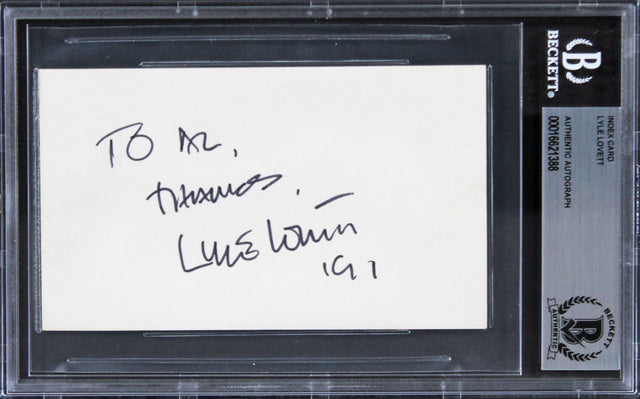 TO AL,
THANKS,
LYLE LOVETT
'91
BECKETT®
INDEX CARD
LYLE LOVETT
AUTHENTIC AUTOGRAPH
00016621388
BECKETT
AUTHENTIC